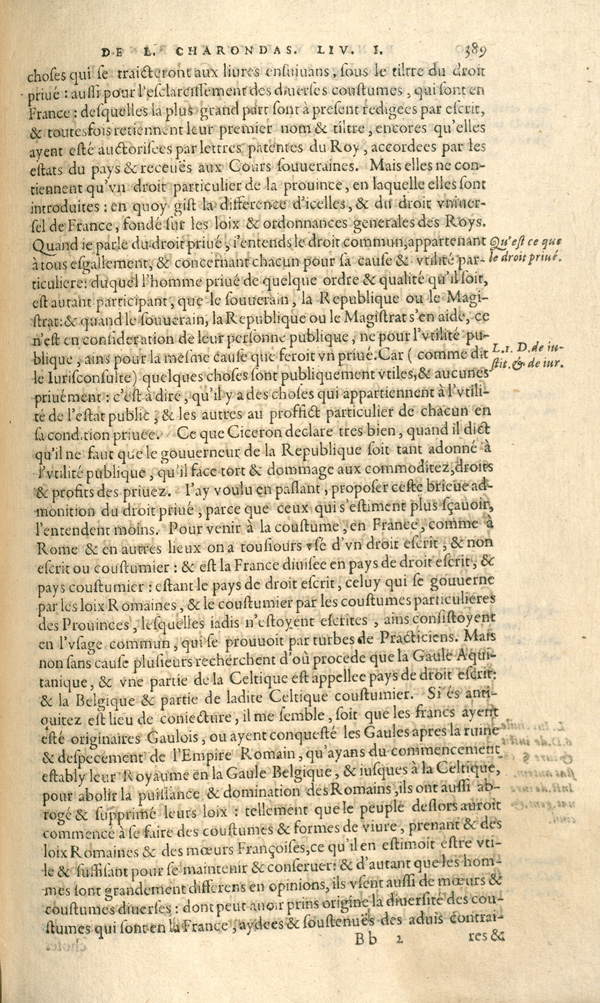 DE L. CHARONDAS. LIV. I. 389
choses qui se traicteront aux liures ensuiuans, sous le tiltre du droit
priué : aussi pour l'esclarcissement des diuerses coustumes, qui sont en
France : desquelles la plus grand part sont à present redigees par escrit,
& toutesfois retiennent leur premier nom & tiltre, encores qu'elles
ayent esté auctorisées par lettres patentes du Roy, accordees par les
estats du pays & receuës aux Cours souueraines. Mais elles ne con-
tiennent qu'vn droit particulier de la prouince, en laquelle elles sont
introduites : en quoy gist la difference d'icelles, & du droit vniuer-
sel de France, fondé sur les loix & ordonnances generales des Roys.
Quand ie parle du droit priué, i'entends le droit commun, appartenant
à tous esgallement, & concernant chacun pour sa cause & vtilité par-
ticuliere: duquel l'homme priué de quelque ordre & qualité qu'il soit,
est autant participant, que le souuerain, la Republique ou le Magi-
strat: & quand le souuerain, la Republique ou le Magistrat s'en aide, ce
n'est en consideration de leur personne publique, ne pour l'vtilité pu-
blique, ains pour la mesme cause que feroit vn priué. Car ( comme dit
le Iurisconsulte) quelques choses sont publiquement vtiles, & aucunes
priuément : c'est à dire, qu'il y a des choses qui appartiennent à l'vtili-
té de l'estat public, & les autres au proffict particulier de chacun en
sa condition priuee. Ce que Ciceron declare tres bien, quand il dict
qu'il ne faut que le gouuerneur de la Republique soit tant adonné à
l'vtilité publique, qu'il face tort & dommage aux commoditez, droits
& profits des priuez. I'ay voulu en passant, proposer ceste brieue ad-
monition du droit priué, parce que ceux qui s'estiment plus sçauoir,
l'entendent moins. Pour venir à la coustume, en France, comme à
Rome & en autres lieux on a tousiours vse d'vn droit escrit, & non
escrit ou coustumier : & est la France diuisee en pays de droit escrit, &
pays coustumier : estant le pays de droit escrit, celuy qui se gouuerne
par les loix Romaines, & le coustumier par les coustumes particulieres
des Prouinces, lesquelles iadis n'estoyent escrites, ains consistoyent
en l'vsage commun, qui se prouuoit par turbes de Practiciens. Mais
non sans cause plusieurs recherchent d'où procede que la Gaule Aqui-
tanique, & vne partie de la Celtique est appellee pays de droit escrit:
& la Belgique & partie de ladite Celtique coustumier. Si és anti-
quitez est lieu de coniecture, il me semble, soit que les francs ayent
esté originaires Gaulois, ou ayent conquesté les Gaules apres la ruine
& despecement de l'Empire Romain, qu'ayans du commencement
estably leur Royaume en la Gaule Belgique, & iusques à la Celtique,
pour abolir la puissance & domination des Romains, ils ont aussi ab-
rogé & supprimé leurs loix : tellement que le peuple deslors auroit
commencé à se faire des coustumes & formes de viure, prenant & des
loix Romaines & des mœurs Françoises, ce qu'il en estimoit estre vti-
le & suffisant pour se maintenir & conseruer: & d'autant que les hom-
mes sont grandement differens en opinions, ils vsent aussi de mœurs &
coustumes diuerses : dont peut auoir prins origine la diuersité des cou-
stumes qui sont en la France, aydees & soustenuës des aduis contrai-
Bb 2 res &
Qu'est ce que
le droit priué.
L.1. D. de iu-
stit. & de iur.